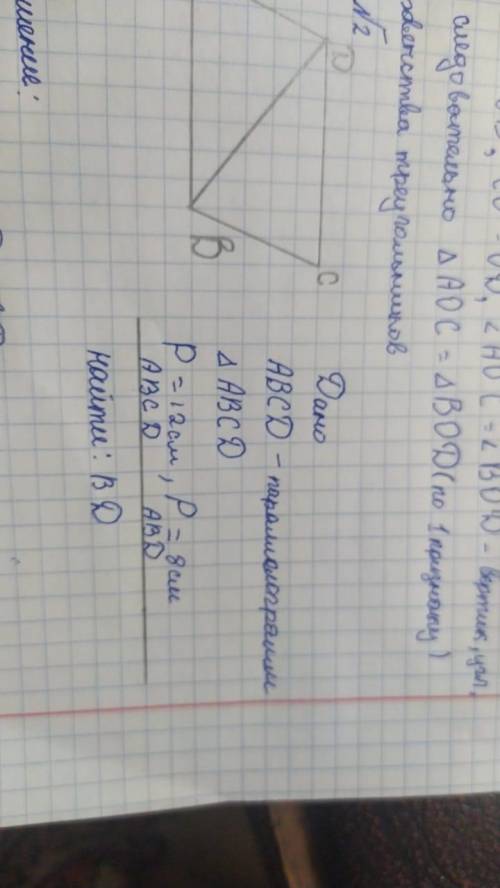 OD, ∠AOC = ∠BOD - вертик, угл,
следовательно △AOC = △BOD (по 1 признаку)
треугольников
№2
D
C
B
Дано
ABCD - параллелограмм
△ ABCD
P ABCD = 12 см, P ABD = 8 см
найти: BD